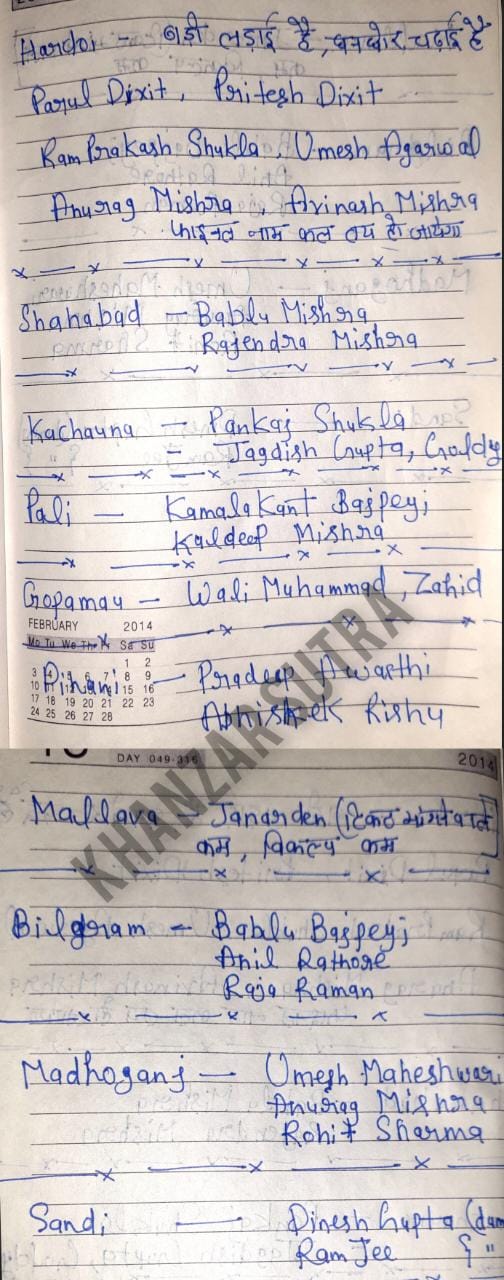 Hardoi - बड़ी लड़ाई है, घनघोर चढ़ाई है
Parul Dixit, Pritesh Dixit
Ram Prakash Shukla, Umesh Agarwal
Anurag Mishra, Avinash Mishra
फाइनल नाम कल तय हो जायेगा
Shahabad - Bablu Mishra
Rajendra Mishra
Kachauna - Pankaj Shukla
- Jagdish Gupta, Guddy
Pali - Kamala Kant Bajpeyi
Kuldeep Mishra
Gopamau - Wali Muhammad, Zahid
FEBRUARY 2014
Mo Tu We Th Fr Sa Su
1 2
3 4 5 6 7 8 9
10 11 12 13 14 15 16
17 18 19 20 21 22 23
24 25 26 27 28
Pihani - Pradeep Awasthi
Abhishek Rishu
KHANZAR SUTRA
DAY 049-316 2014
Mallava - Janarden (टिकट मांगने वाले
कम, विकल्प कम
Bilgram - Bablu Bajpeyi
Anil Rathore
Raja Raman
Madhoganj - Umesh Maheshwari
Anurag Mishra
Rohit Sharma
Sandi - Dinesh Gupta (dam
Ram Jee { "